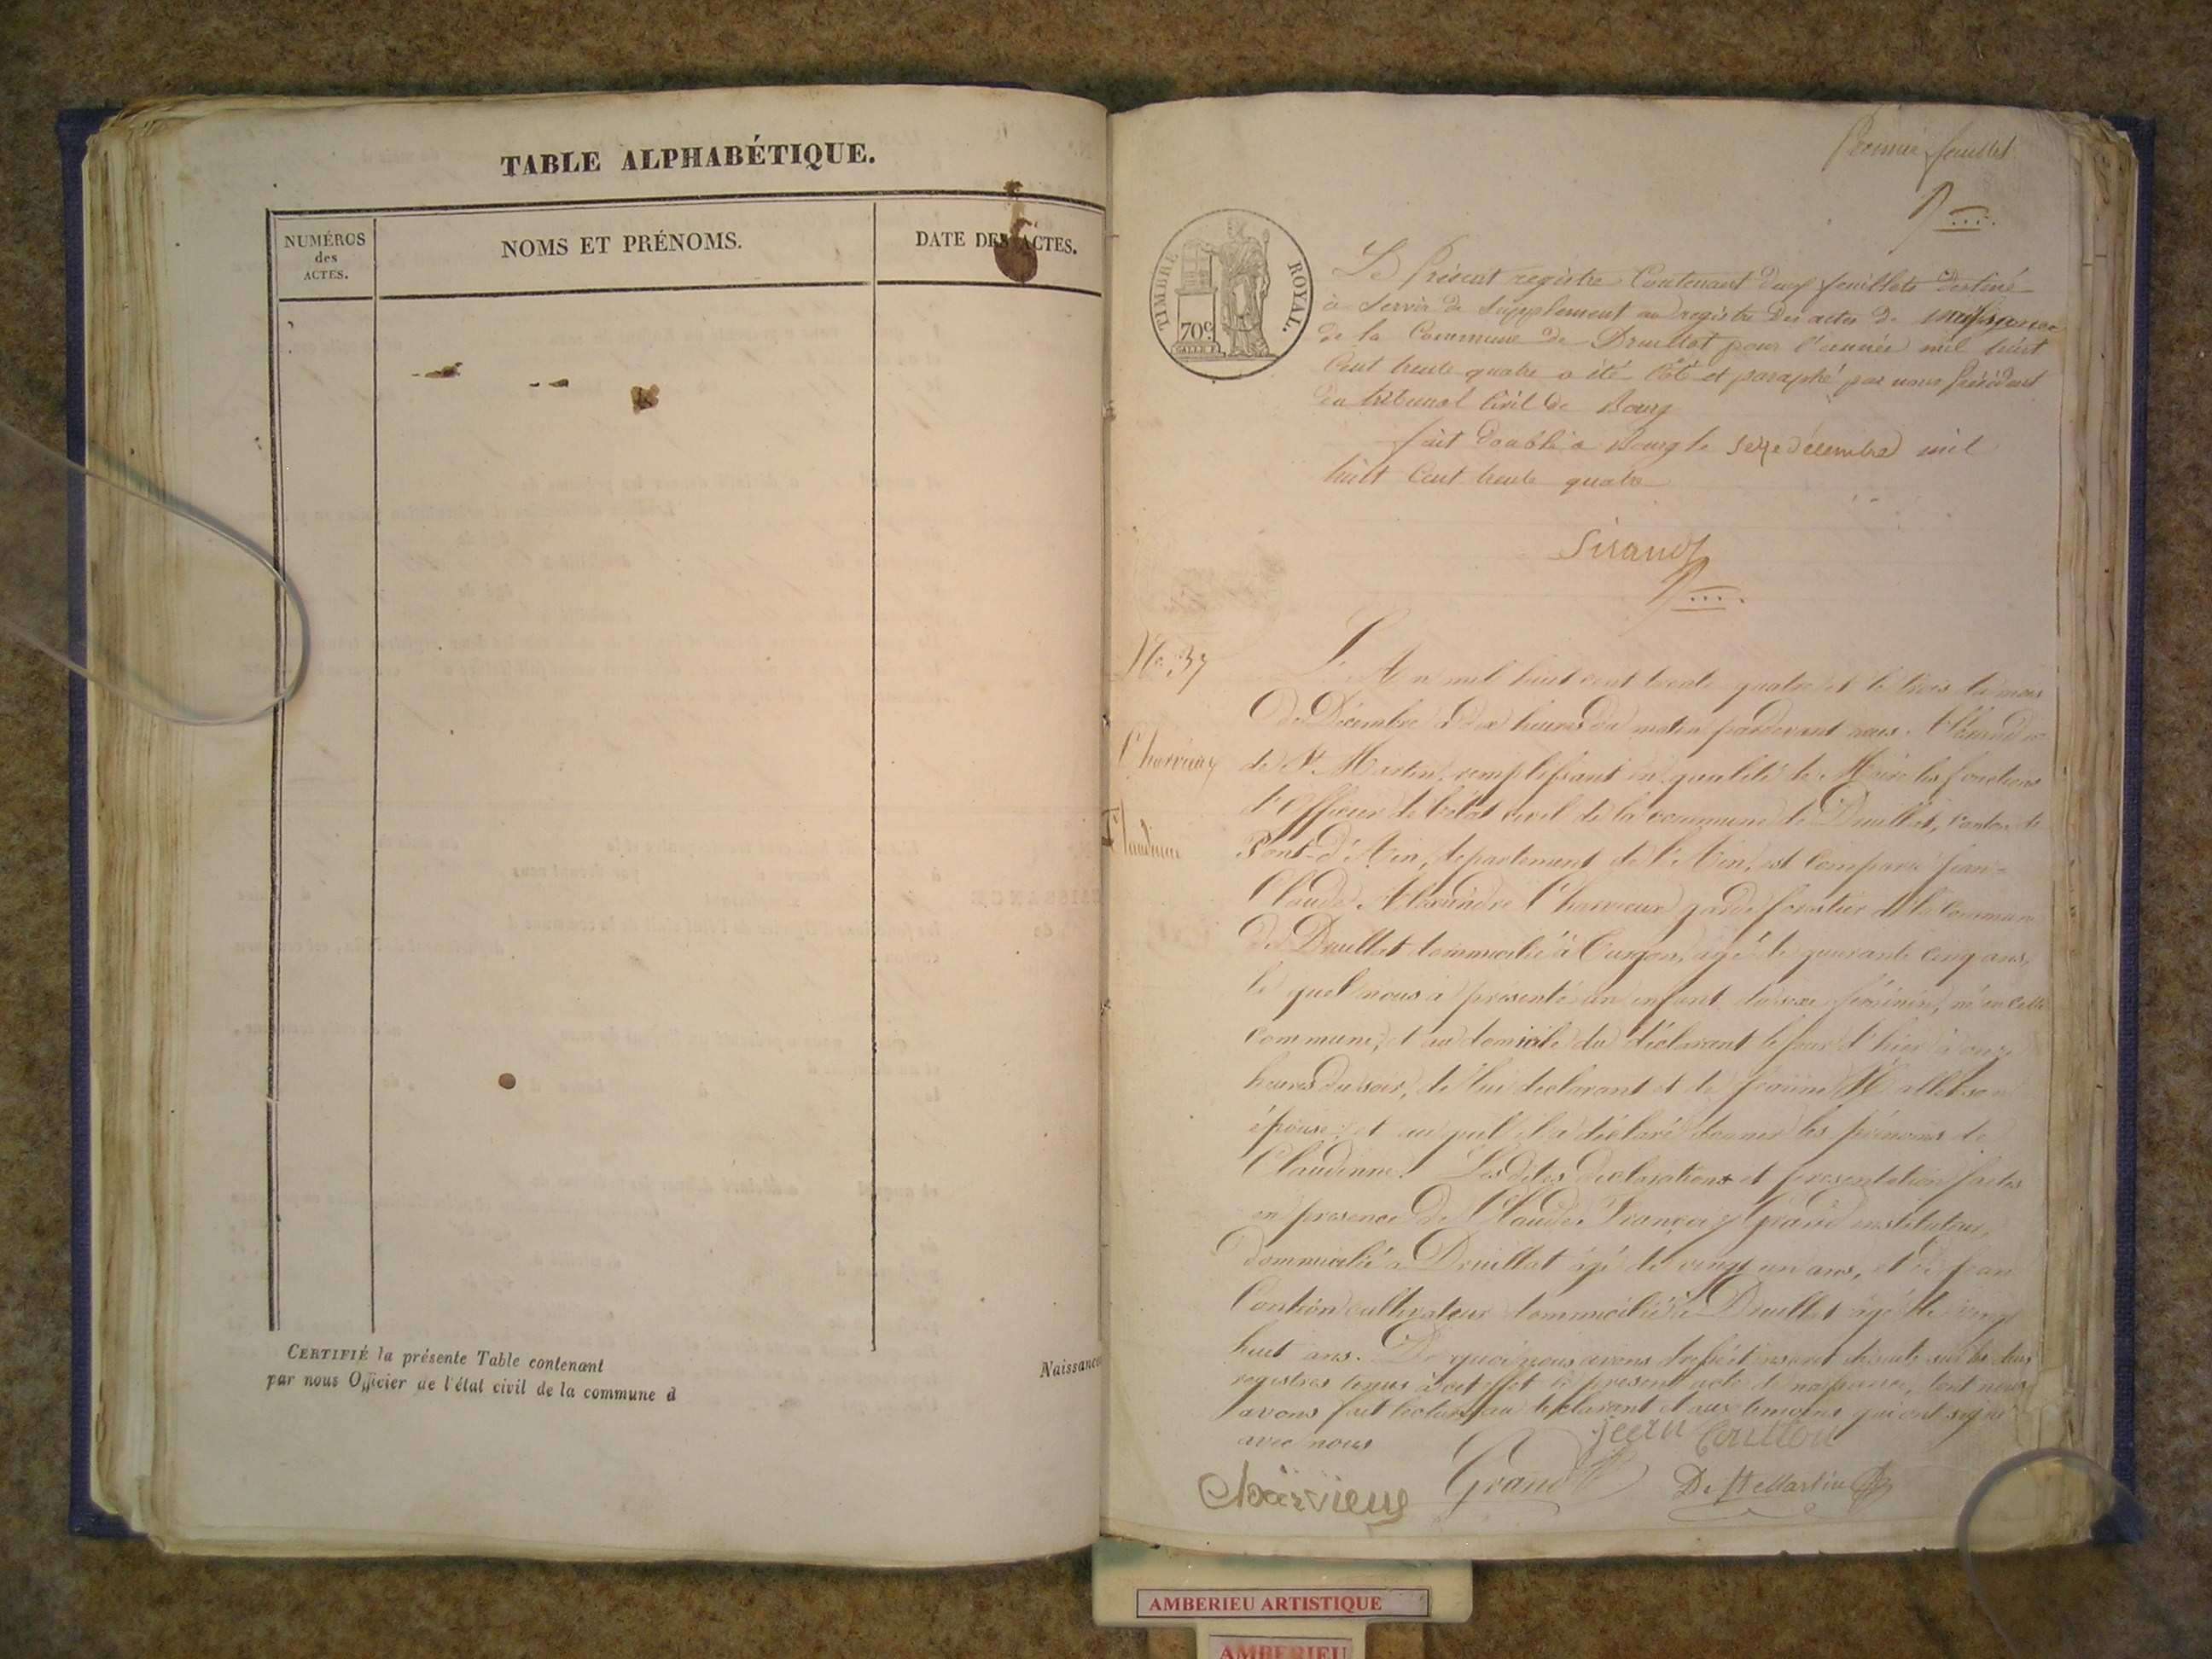 TABLE ALPHABÉTIQUE.
NUMÉROS
des
ACTES.
NOMS ET PRÉNOMS.
DATE DES ACTES.
CERTIFIÉ la présente Table contenant
par nous Officier de l'état civil de la commune d
Naissance
Premier feuillet
TIMBRE ROYAL.
70c.
Le Présent registre Contenant deux feuillets destiné
à Servir de Supplement au registre des actes de naissance
de la Commune de Druillat pour l'année mil huit
Cent trente quatre a été Coté et paraphé par nous Président
du tribunal Civil de Bourg
fait double à Bourg le seize décembre mil
huit Cent trente quatre
Sirand
No. 37
Charvieux
Claudine
L'An mil huit cent trente quatre et le trois du mois
de Décembre à dix heures du matin pardevant nous
de St. Martin, remplissant en qualité de Maire les fonctions
d'Officier de l'état civil de la commune de Druillat, canton de
Pont-d'Ain, département de l'Ain, est comparu Jean-
Claude Alexandre Charvieux garde forestier de la Commune
de Druillat dommicilié à Turgon, agé de quarante cinq ans,
le quel nous a présenté un enfant du sexe féminin, né en cette
commune, et au domicile du déclarant le jour d'hier à onze
heures du soir, de lui declarant et de Jeanne Mallet son
épouse; et au quel il a déclaré donner les prénoms de
Claudinne. Les dites declarations et presentation faites
en presence de Claude François Grand instituteur,
dommicilié à Druillat agé de vingt un ans, et de Jean
Coulton cultivateur dommicilié à Druillat agé de vingt
huit ans. De quoi nous avons dressé et inscrit de suite sur les deux
registres tenus à cet effet le présent acte de naissance, dont nous
avons fait lecture au déclarant et aux temoins qui ont signé
avec nous
jean Coulton
Charvieux
Grand
De St Martin
AMBERIEU ARTISTIQUE
AMBERIEU